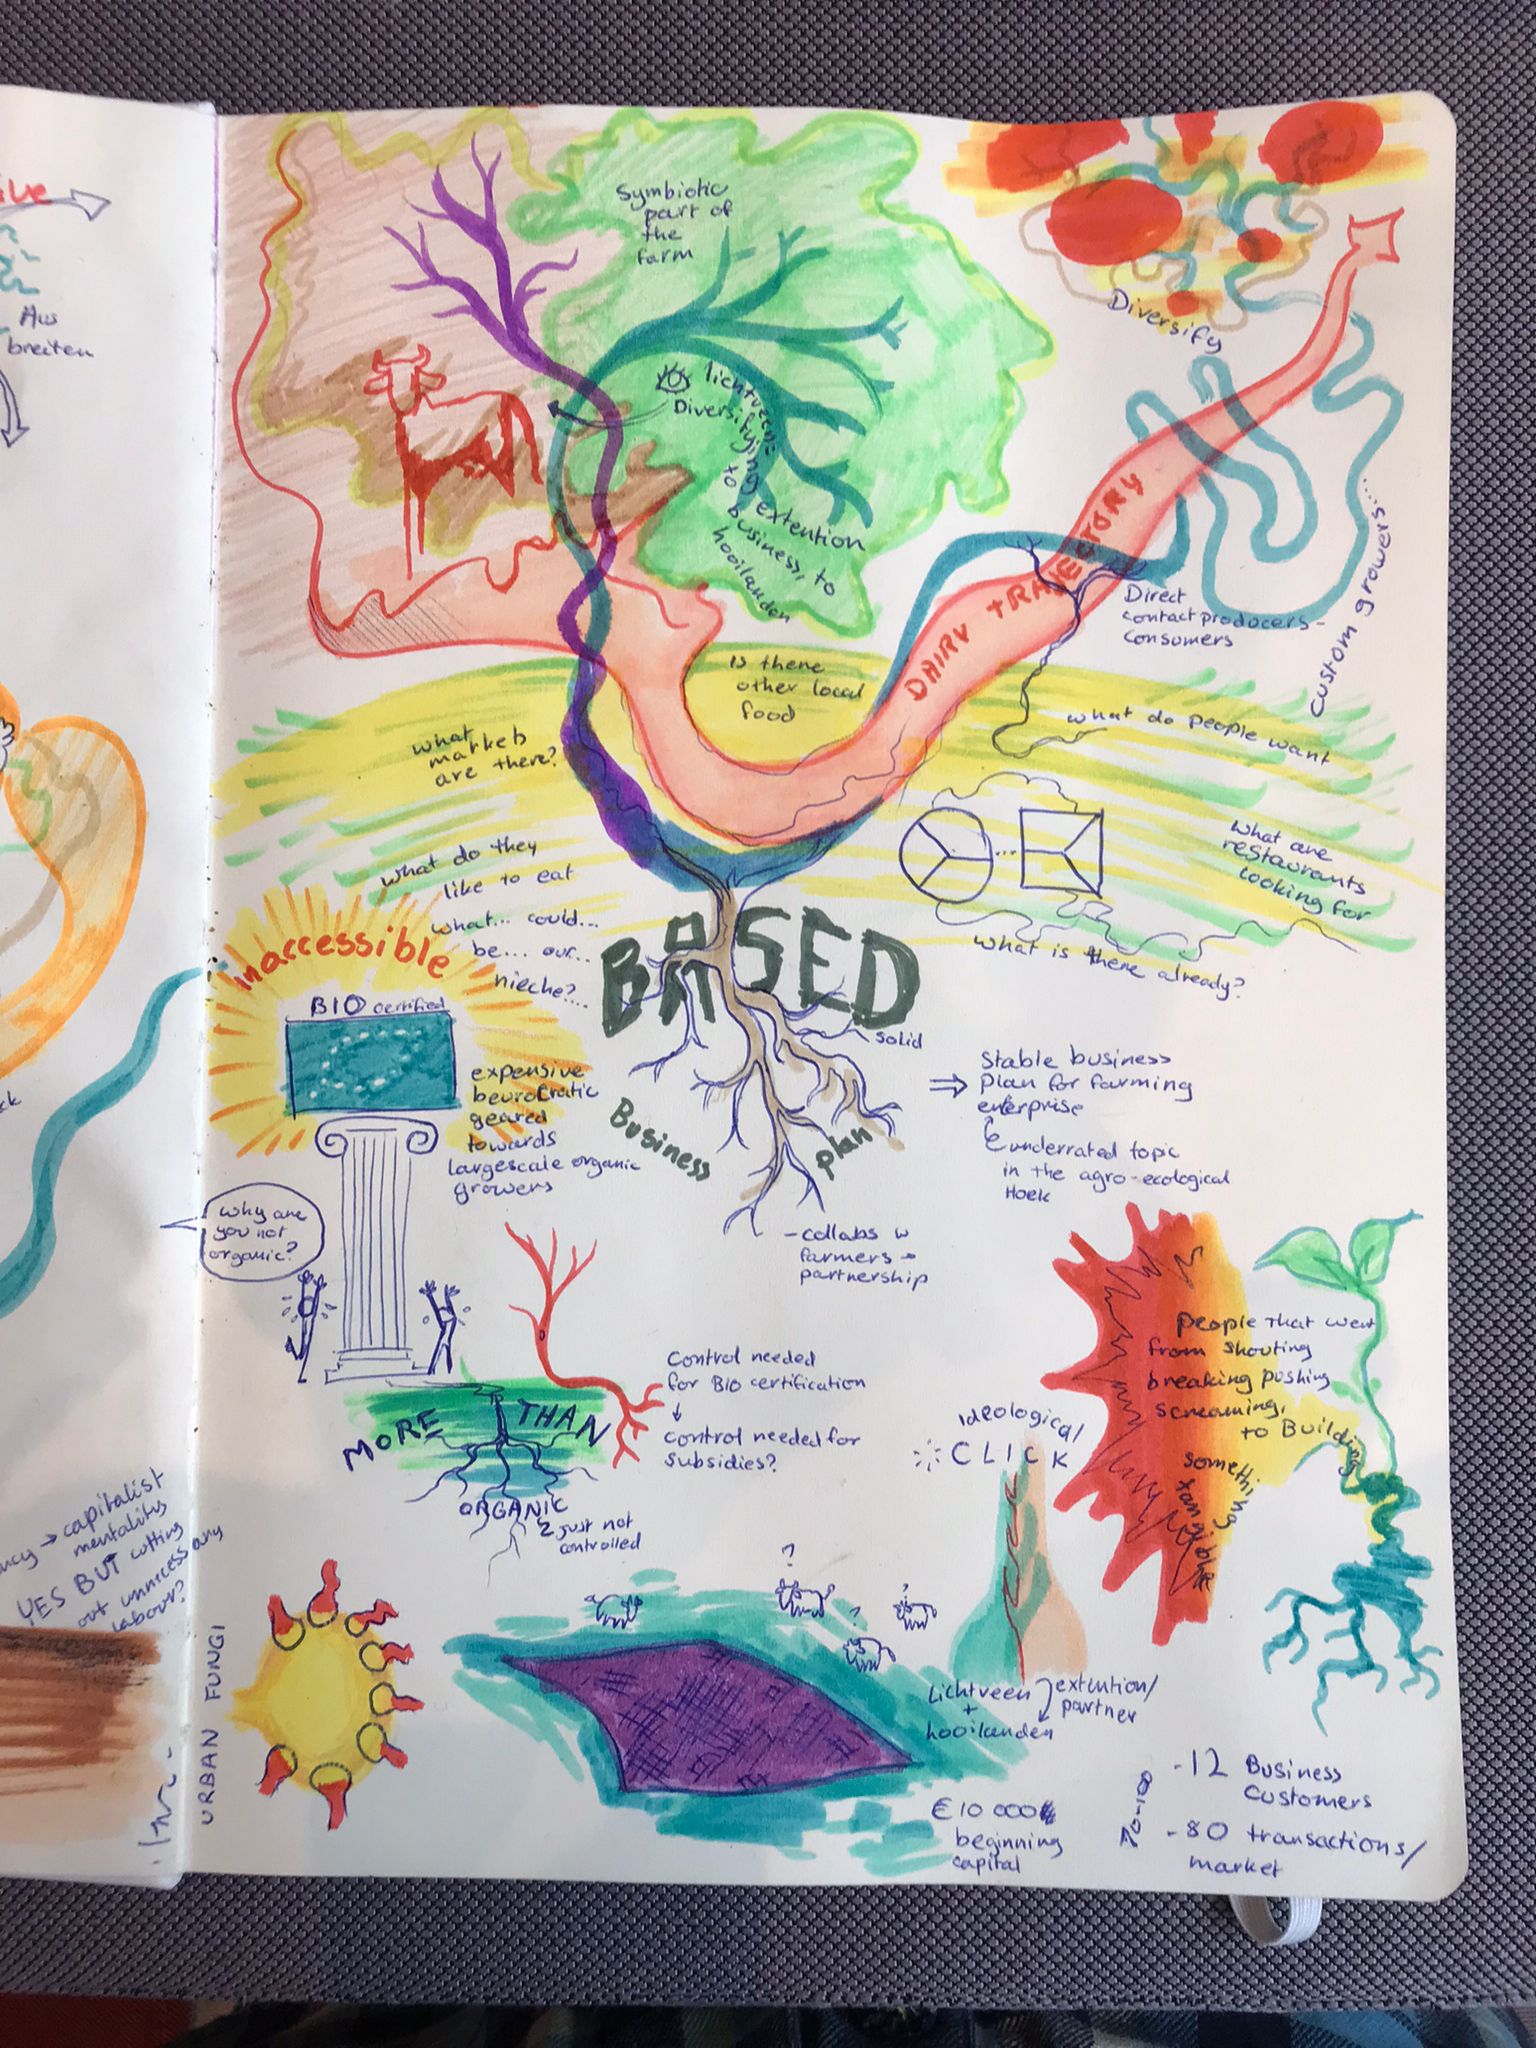 Aus
breiten
Symbiotic
part of
the
farm
Diversify
lichtveen:
Diversifying
extention
to
business, to
hooilanden
DAIRY TRAJECTORY
Direct
contact producers-
consumers
custom growers....
Is there
other local
food
what
markets
are there?
what do people want
what do they
like to eat
what... could...
be... our...
nieche?....
What are
restaurants
looking for
what is there already?
BASED
solid
Business
plan
inaccessible
BIO certified
expensive
beurocratic
geared
towards
largescale organic
growers
⇒ Stable business
plan for farming
enterprise
underrated topic
in the agro-ecological
Hoek
why are
you not
organic?
- collabs w
farmers →
partnership
Control needed
for BIO certification
↓
Control needed for
subsidies?
MORE THAN
ORGANIC
just not
controlled
ideological
CLICK
people that went
from shouting
breaking pushing
screaming,
to Building
something
tangible
→ capitalist
mentality
YES BUT cutting
out unnicessary
labour?
URBAN FUNGI
?
?
?
Lichtveen
+
hooilanden
extention/
partner
€10 000
beginning
capital
70-100
-12 Business
customers
-80 transactions/
market